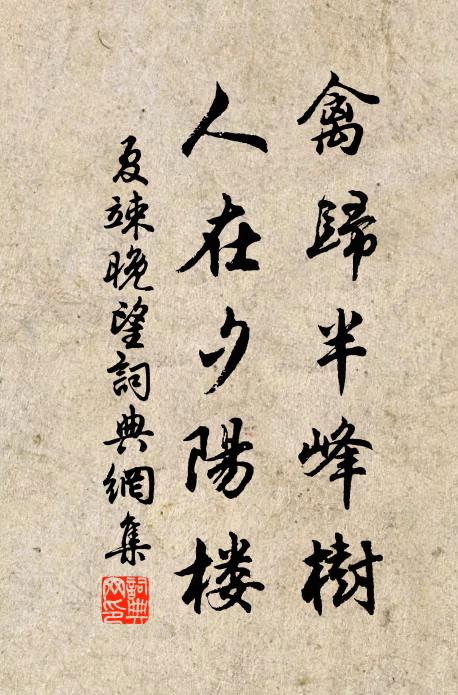 禽歸半峰樹
人在夕陽楼
夏竦晚望詞典網集
詞典網印